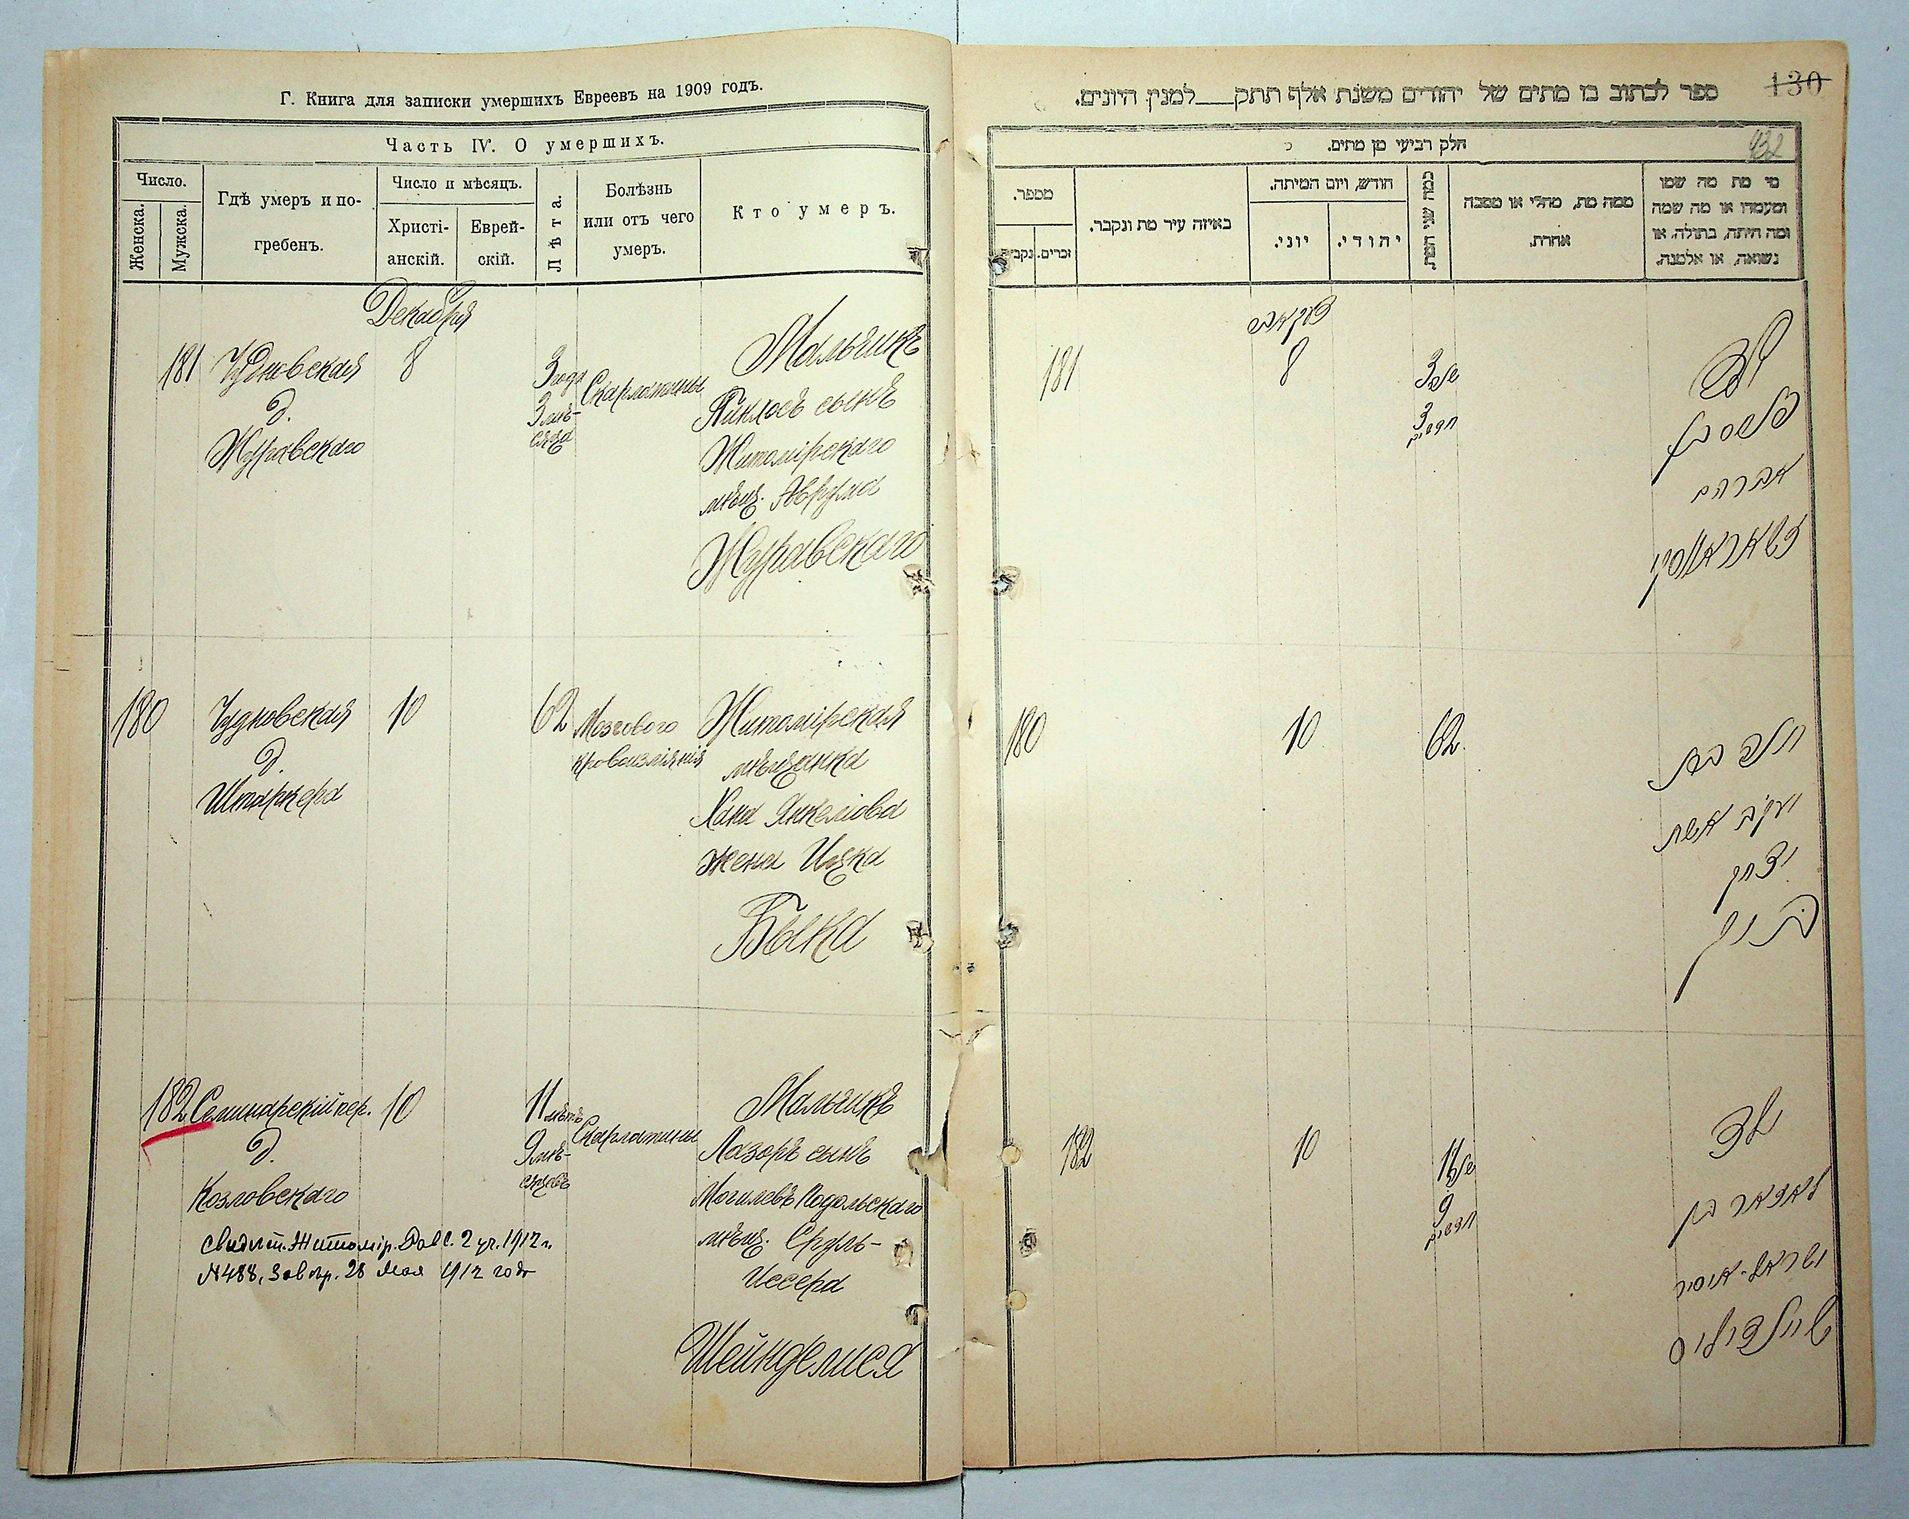 Г. Книга для записки умершихъ Евреевъ на 1909 годъ.
Часть IV. О умершихъ.
Число.
Женска.
Мужска.
Гдѣ умеръ и по-
гребенъ.
Число и мѣсяцъ.
Христі-
анскій.
Еврей-
скій.
Лѣта.
Болѣзнь
или отъ чего
умеръ.
Кто умеръ.
Декабря
181
Чудновская
д.
Журавскаго
8
3 года
3 мѣ-
сяца
Скарлатины
Мальчикъ
Пинхосъ сынъ
Житомірскаго
мѣщ. Аврума
Журавскаго
180
Чудновская
д.
Штаркера
10
62
Мозгового
кровоизліянія
Житомірская
мѣщанка
Хана Янкеліова
жена Ицка
Быка
182
Семинарскій пер.
д.
Козловскаго
10
11 лѣтъ
9 мѣ-
сяцевъ
Скарлатины
Мальчикъ
Лазоръ сынъ
Могилевъ Подольскаго
мѣщ. Сруль-
Иссера
Шейнделиса
свидѣт. Житомір. 2 уч. 1912 г.
№ 488, 28 мая 1912 года
ספר לכתוב בו מתים של יהודים משנת אלף תתק למנין היונים.
130
132
חלק רביעי מן מתים.
מספר.
נקבות
זכרים.
באיזה עיר מת ונקבר.
חודש, ויום המיתה.
יוני.
יהודי.
כמה שני המת.
ממה מת, מחלי או מסבה
אחרת.
מי מת מה שמו
ומעמדו או מה שמה
ומה היתה, בתולה, או
נשואה, או אלמנה.
דעקאבר
181
8
3 שנים
3 חדשים
ילד
פנחס בן
אברהם
זשוראווסקי
180
10
62
חנה בת
יעקב אשת
יצחק
ביק
182
10
11 שנים
9 חדשים
ילד
לאזאר בן
ישראל-איסר
שיינדיליס